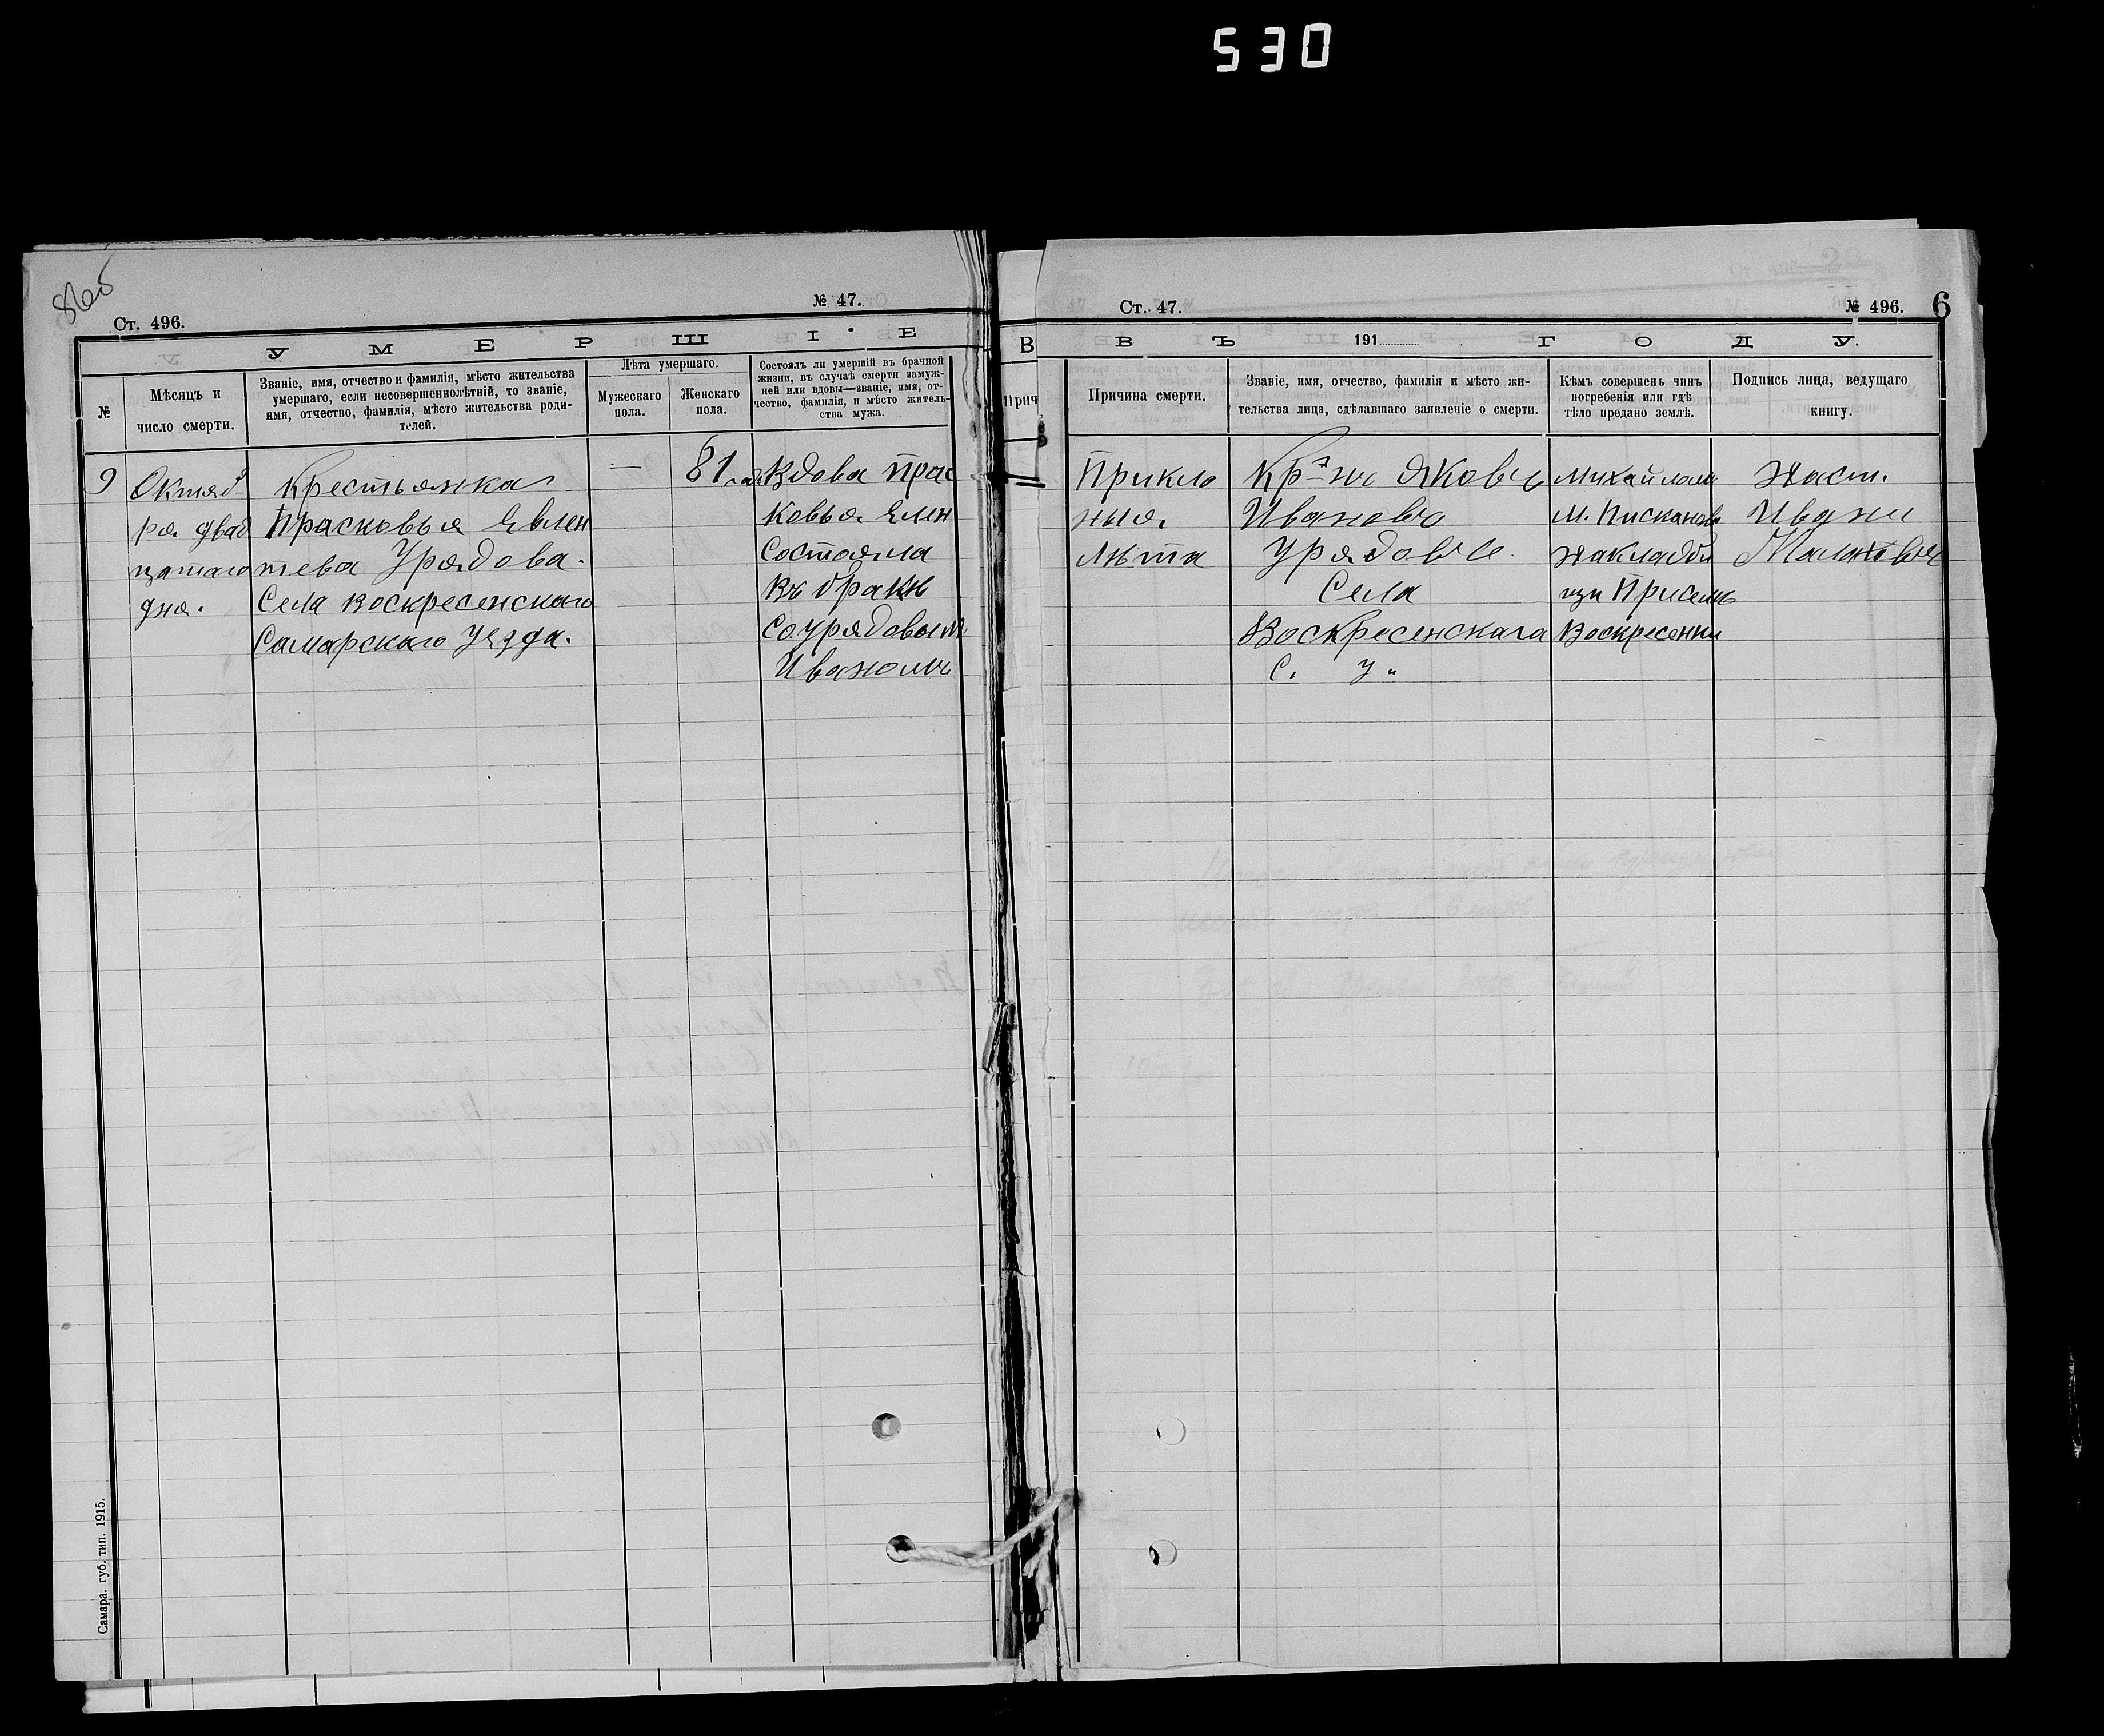 530
Ст. 496.
№ 47.
У М Е Р Ш І Е
№
Мѣсяцъ и
число смерти.
Званіе, имя, отчество и фамилія, мѣсто жительства
умершаго, если несовершеннолѣтній, то званіе,
имя, отчество, фамилія, мѣсто жительства роди-
телей.
Лѣта умершаго.
Мужескаго
пола.
Женскаго
пола.
Состоялъ ли умершій въ брачной
жизни, въ случаѣ смерти замуж-
ней или вдовы—званіе, имя, от-
чество, фамилія, и мѣсто житель-
ства мужа.
9
Октяб
ря двад
цатаго
дня.
Крестьянка
Прасковья Евлен
тева Урядова.
Села Воскресенскаго
Самарскаго Уезда.
—
81
Вдова Прас
ковья Елен
Состояла
Въ бракѣ
Со урядовым
Иваномъ
Самара. губ. тип. 1915.
В
Прич
Ст. 47.
№ 496.
6
В Ъ 191 Г О Д У.
Причина смерти.
Званіе, имя, отчество, фамилія и мѣсто жи-
тельства лица, сдѣлавшаго заявленіе о смерти.
Кѣмъ совершенъ чинъ
погребенія или гдѣ
тѣло предано землѣ.
Подпись лица, ведущаго
книгу.
Прикло
ныя
Лѣта
Яковъ
Иваново
Урядовъ
Села
Воскресенскаго
С. У.
М. Писканов
на кладби
Воскресенки
Наст.
Иванъ